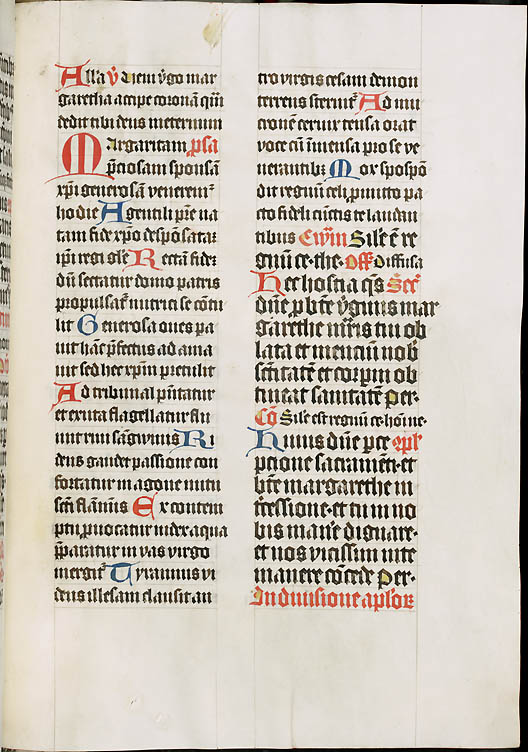 Alla ṽ Ueni v̾go mar
garetha accipe coronã quã
dedit tibi deus in eternum
Margaritam psa
p̃ciosam sponsã
xp̃i generosã venerem᷑
hodie A gentili pr̃e na
tam fide xp̃o despõsatã
ip̃i regi gl̃e Rectã fidei
dũ sectatur domo patris
propulsat᷑ nutrici se cõtu
lit Generosa oues pa
uit hãc p̃fectus ad ama
uit sed hec xp̃m pretulit
Ad tribunal p̃ntatur
et exuta flagellatur flu
unt riui sãguinis Ri
dens gaudet passione con
fortatur in agone nutu
sc̃ti flaminis Ex contem
ptu puocatur iudex aqua
p̃paratur in vas virgo
mergit᷑ Tyrannus vi
dens illesam clausit an
tro virgis cesam demon
terrens sternit᷑ Ad mu
cronẽ ceruix tensa orat
voce cũ inmensa pro se ve
nerantibꝫ Mox spospõ
dit regnũ celi punito pa
cto fideli cunctis te laudan
tibus Ewm̃ Sil'e ẽ re
gnũ ce·the· Off Diffusa
Hec hostia q̃s Sec̃
dñe p bt̃e v̾ginis mar
garethe mr̃is tui ob
lata et mencium nob̾
sc̃titatẽ et corpm ob
tineat sanitatẽ Per·
Cõ Sil'e est regnũ ce·hoĩ ne·
Huius dñe pce cpl'
ptione sacramẽti et
bt̃e margarethe in
t̾cessione et tu in no
bis man'e dignare·
et nos vicissim in te
manere cõcede Per·
In diuisione apl'oꝝ